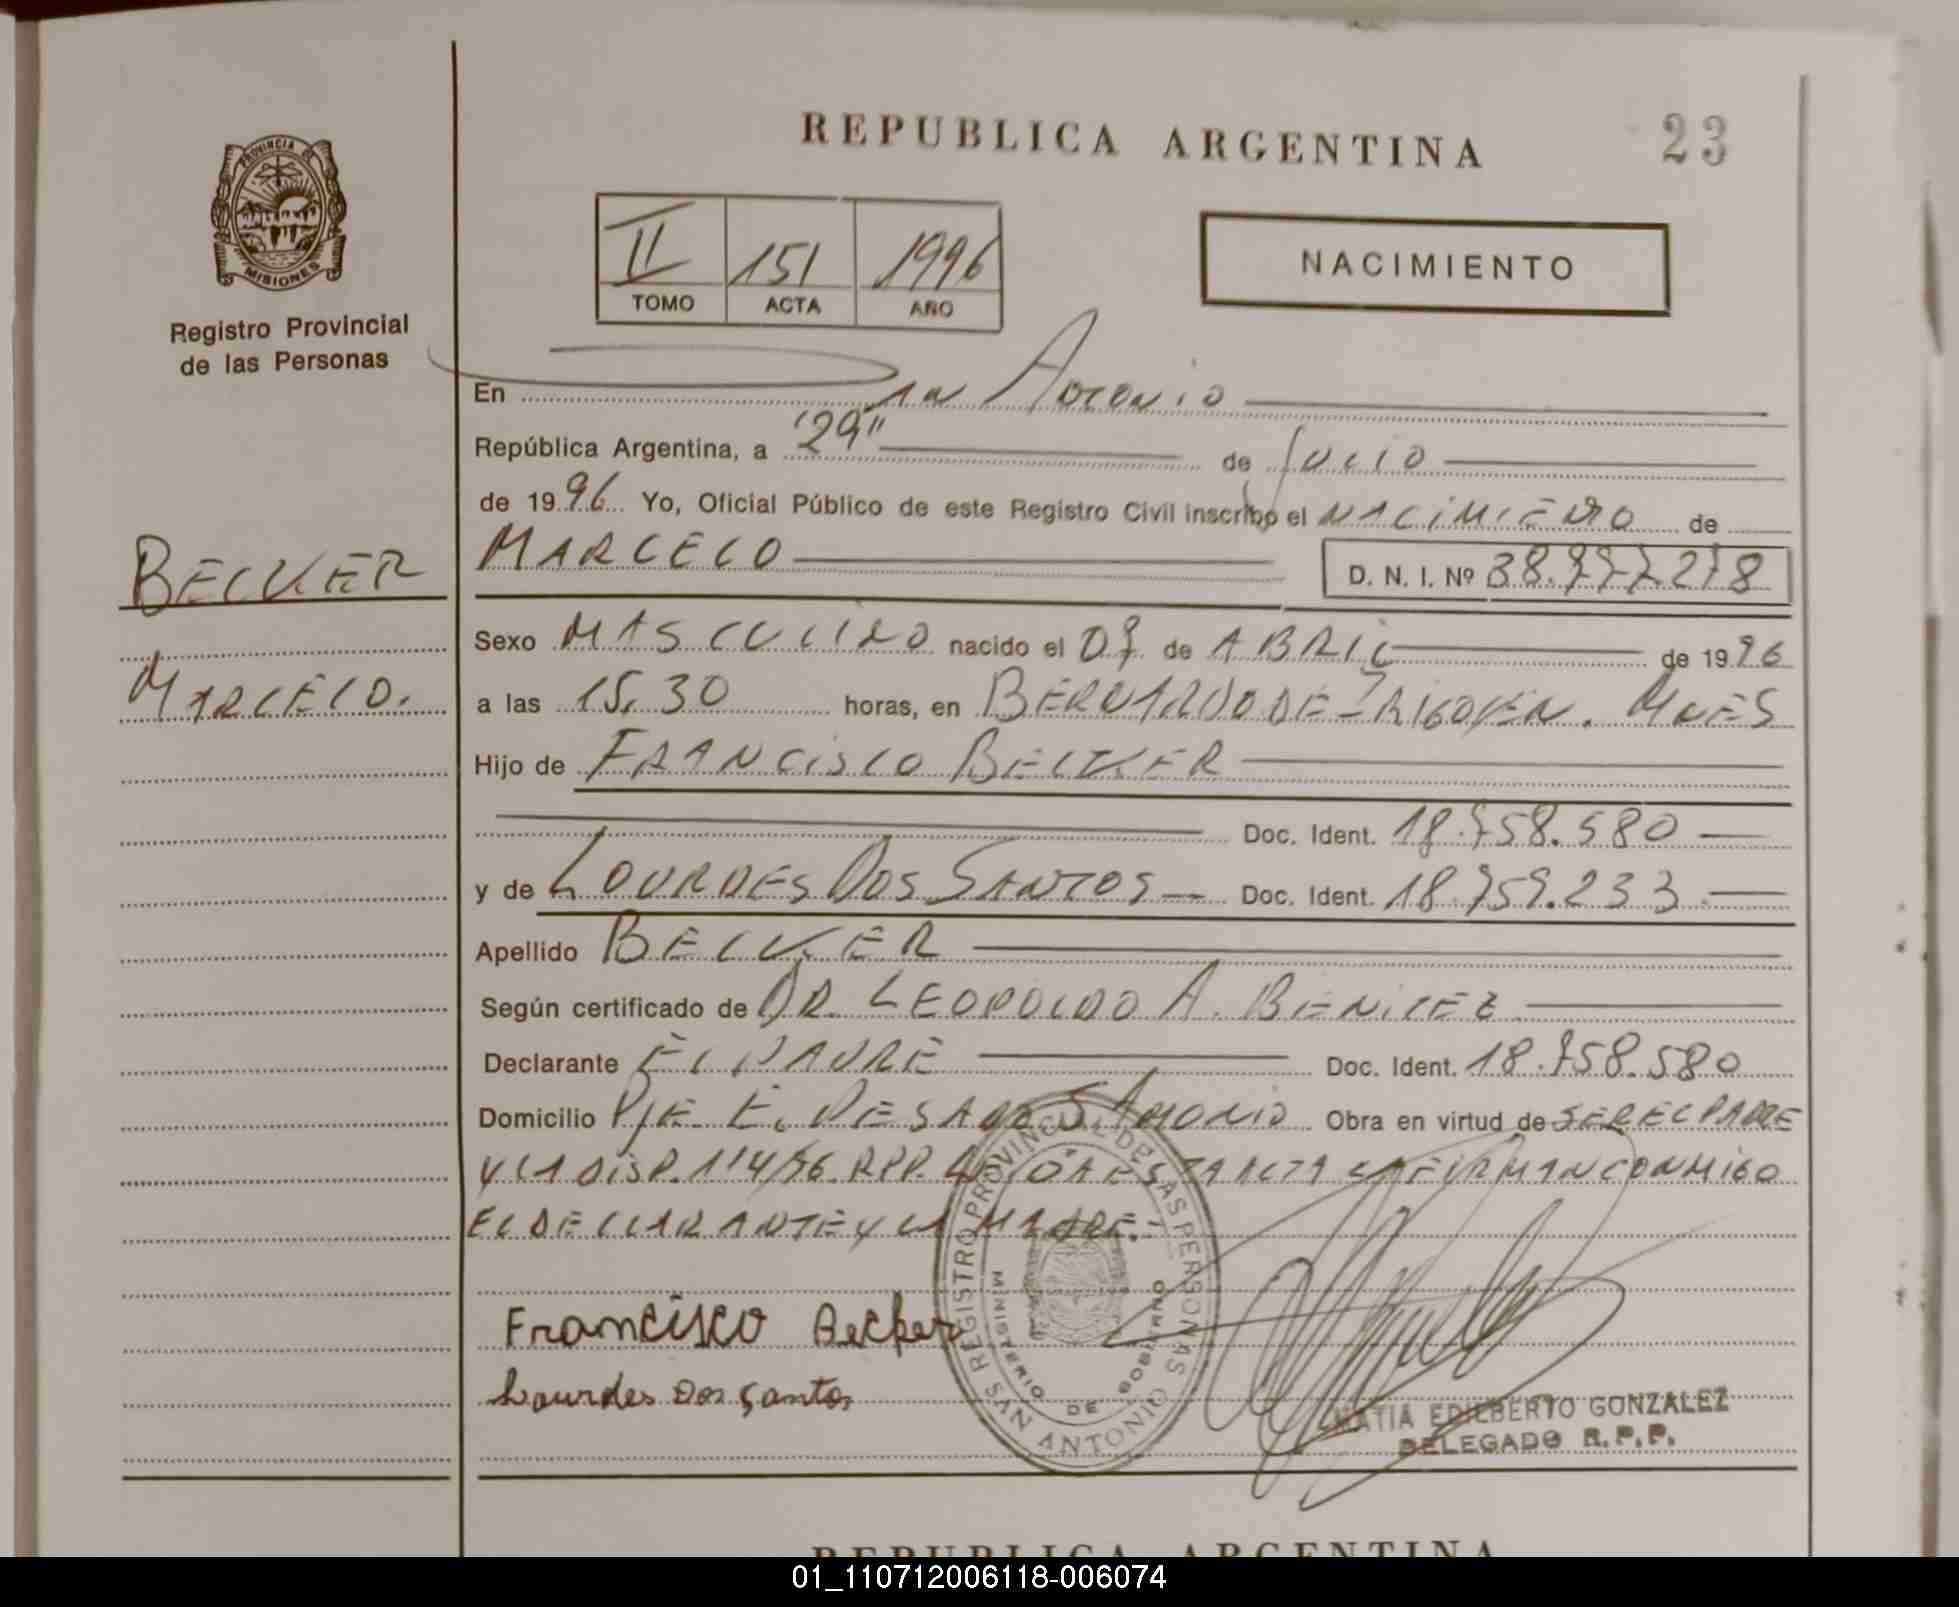 REPUBLICA ARGENTINA
23
PROVINCIA DE
MISIONES
Registro Provincial
de las Personas
II 151 1996
TOMO ACTA AÑO
NACIMIENTO
En San Antonio
República Argentina, a "29" de Julio
de 1996 Yo, Oficial Público de este Registro Civil inscribo el NACIMIENTO de
BECKER
MARCELO
D. N. I. Nº 38.777.278
Sexo MASCULINO nacido el 07 de ABRIL de 1996
MARCELO.
a las 15.30 horas, en BERNARDO DE IRIGOYEN. MNES
Hijo de FRANCISCO BECKER
Doc. Ident. 18.758.580
y de LOURDES DOS SANTOS Doc. Ident. 18.759.233
Apellido BECKER
Según certificado de DR. LEOPOLDO A. BENITEZ
Declarante EL PADRE Doc. Ident. 18.758.580
Domicilio PJE. E. DESADO S. ANTONIO Obra en virtud de SER EL PADRE
Y LA DISP. 114/96. RPP. LEIDA ESTA ACTA LA FIRMAN CONMIGO
EL DECLARANTE Y LA MADRE.
REGISTRO PROVINCIAL DE LAS PERSONAS
MINISTERIO DE GOBIERNO
SAN ANTONIO
Francisco Becker
Lourdes Dos Santos
MATIA EDILBERTO GONZALEZ
DELEGADO R.P.P.
REPUBLICA ARGENTINA
01_110712006118-006074